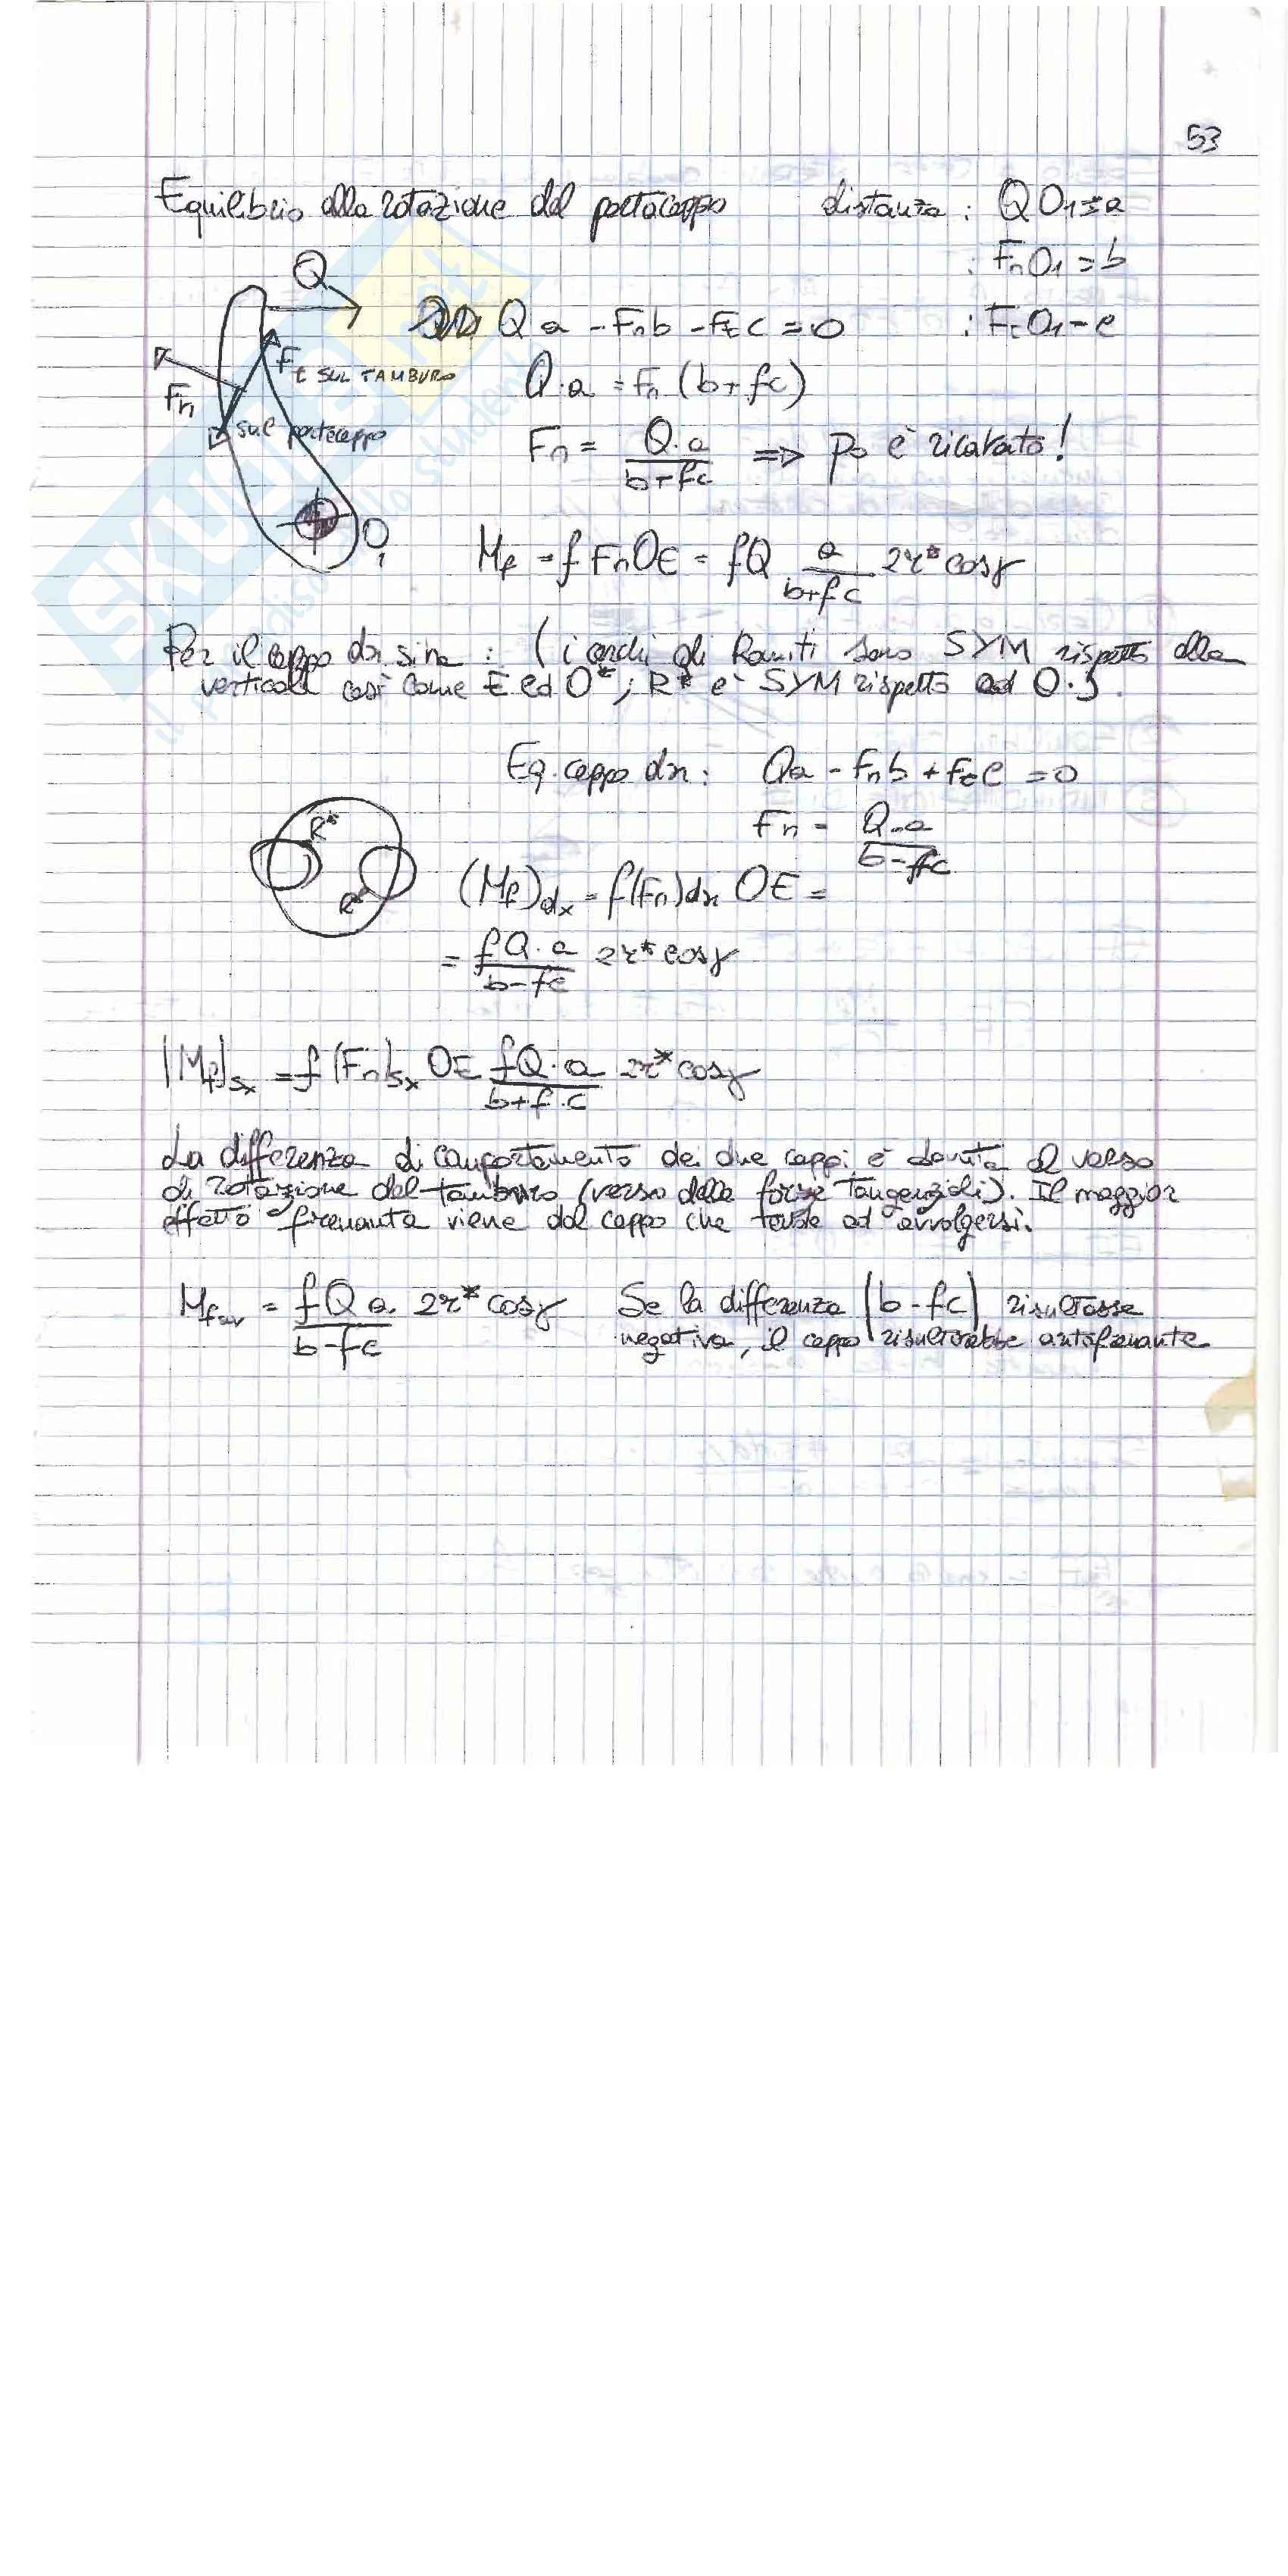 53
Equilibrio alla rotazione del portaceppo distanza : QO₁ = a
: FnO₁ = b
Q
Q a - Fn b - Ft c = 0 : FtO₁ = c
Ft SUL TAMBURO
Q·a = Fn (b + fc)
Fn
sul portaceppo
Fn = Q·a / (b + fc) => po è ricavato!
O₁
Mf = f Fn OE = fQ a / (b + fc) 2r* cosγ
Per il ceppo : (i cerchi di sono SYM rispetto alla
verticale così come E ed O*; R* è SYM rispetto ad O.)
Eq. ceppo dx: Qa - Fn b + Ft c = 0
Fn = Q·a / (b - fc)
R*
R*
(Mf)dx = f(Fn)dx OE =
= fQ·a / (b - fc) 2r* cosγ
|Mf|sx = f |Fn|sx OE fQ·a / (b + f·c) 2r* cosγ
La differenza di comportamento dei due ceppi è dovuta al verso
di rotazione del tamburo (verso delle forze tangenziali). Il maggior
effetto frenante viene dal ceppo che tende ad avvolgersi.
Mfav = fQa / (b - fc) 2r* cosγ Se la differenza (b - fc) risultasse
negativa, il ceppo risulterebbe autofrenante
SKUOLA.net
il paradiso dello studente